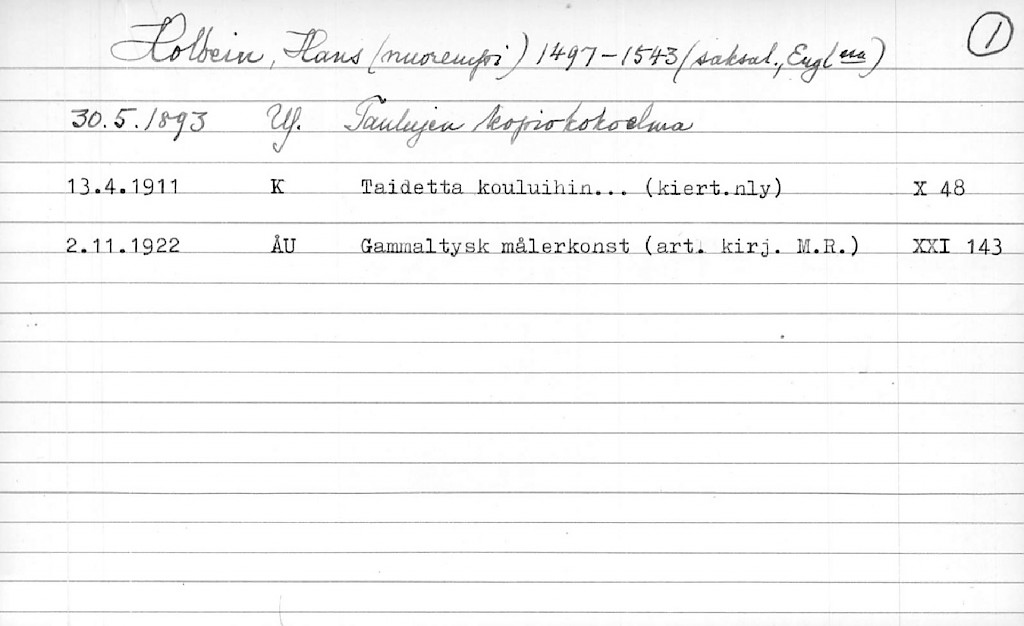 Holbein, Hans (nuorempi) 1497-1543 (saksal., Engl:ssa) 1
30.5.1893 Uf. Taulujen kopiokokoelma
13.4.1911 K Taidetta kouluihin... (kiert.nly) X 48
2.11.1922 ÅU Gammaltysk målerkonst (art. kirj. M.R.) XXI 143